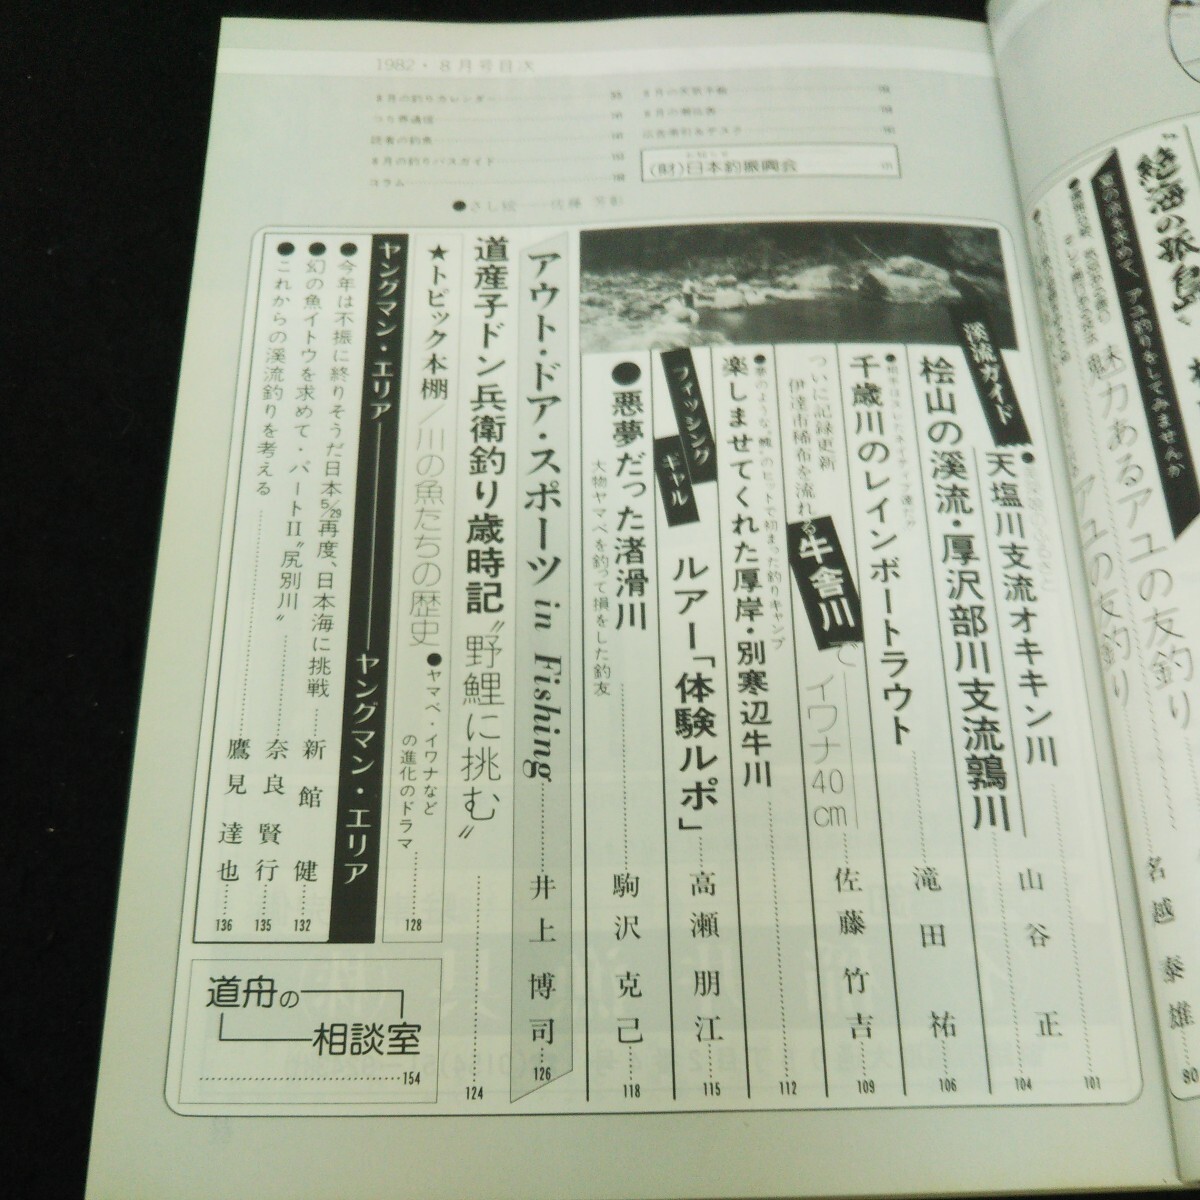 1982・8月号目次
8月の釣りカレンダー
つり界通信
読者の釣果
8月の釣りバスガイド
コラム
8月の天気予報
8月の潮位表
広告索引&デスク
お知らせ
(財)日本釣振興会
●さし絵——佐藤 芳影
絶海の孤島
アユ釣りをしてみませんか
魅力あるアユの友釣り
アユの友釣り
名越泰雄
80
渓流ガイド
天塩川支流オキキン川
101
山谷 正
104
桧山の渓流・厚沢部川支流鶉川
滝田 祐
106
千歳川のレインボートラウト
109
ついに記録更新
伊達市稀布を流れる牛舎川でイワナ40cm
佐藤竹吉
●夢のような〝鱒〟のヒットで初まった釣りキャンプ
楽しませてくれた厚岸・別寒辺牛川
112
フィッシングギャル
ルアー「体験ルポ」
高瀬朋江
115
●悪夢だった渚滑川
大物ヤマベを釣って損をした釣友
駒沢克己
118
アウト・ドア・スポーツ in Fishing
井上博司
126
道産子ドン兵衛釣り歳時記〝野鯉に挑む〟
124
★トピック本棚/川の魚たちの歴史
●ヤマベ・イワナなどの進化のドラマ
128
ヤングマン・エリア——ヤングマン・エリア
●今年は不振に終りそうだ日本5/29再度、日本海に挑戦
新館 健
132
●幻の魚イトウを求めて・パートII〝尻別川〟
奈良賢行
135
●これからの渓流釣りを考える
鷹見達也
136
道舟の相談室
154